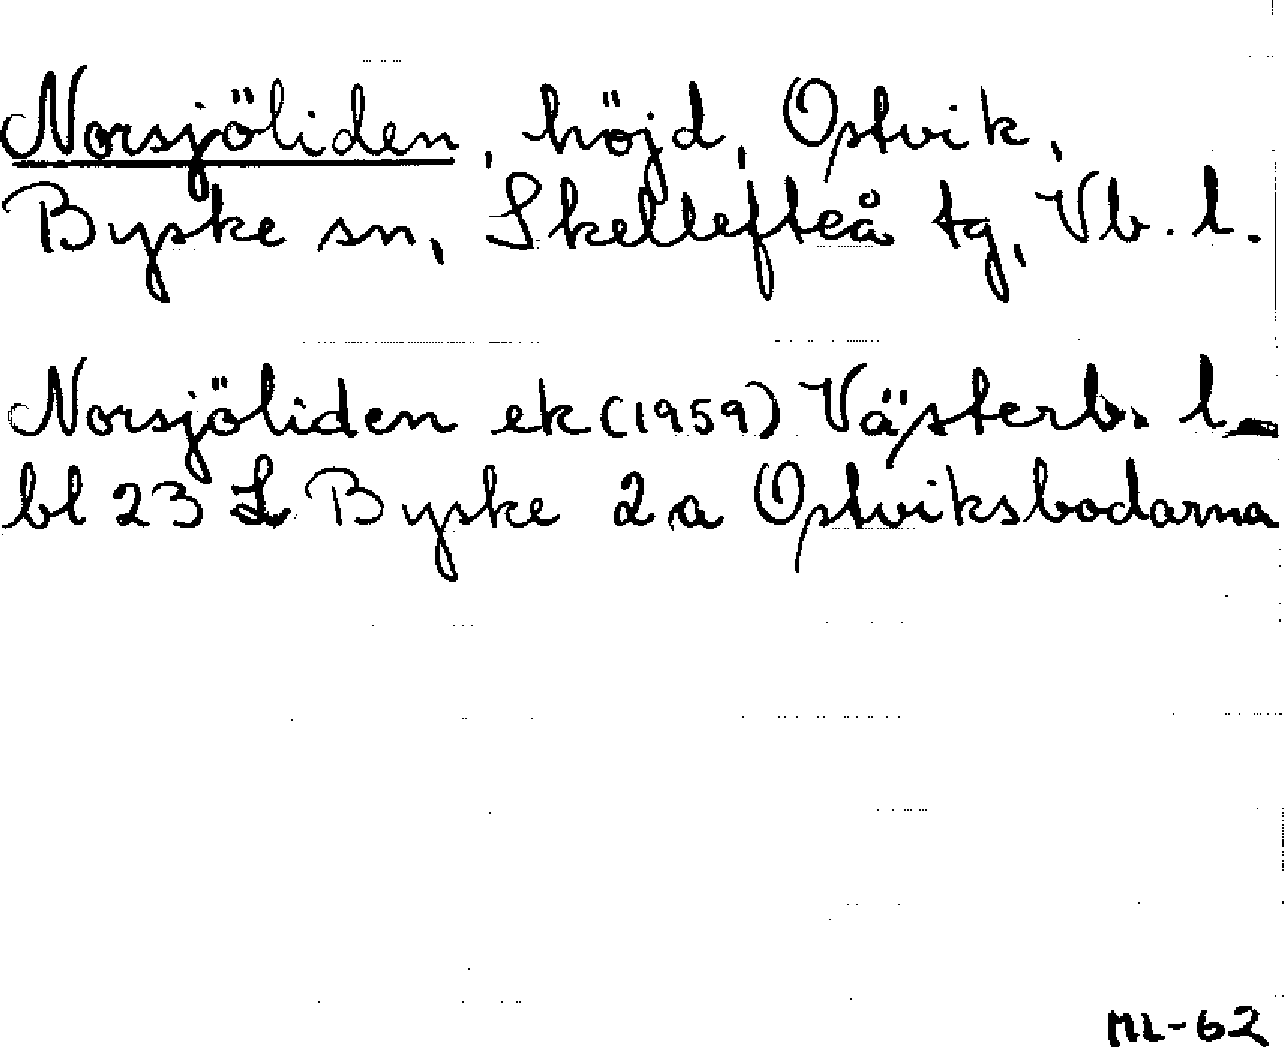 Norsjöliden, höjd, Ostvik,
Byske sn, Skellefteå tg, Vb. l.
Norsjöliden ek (1959) Västerb. l
bl 23 L Byske 2 a Ostviksbodarna
ML-62